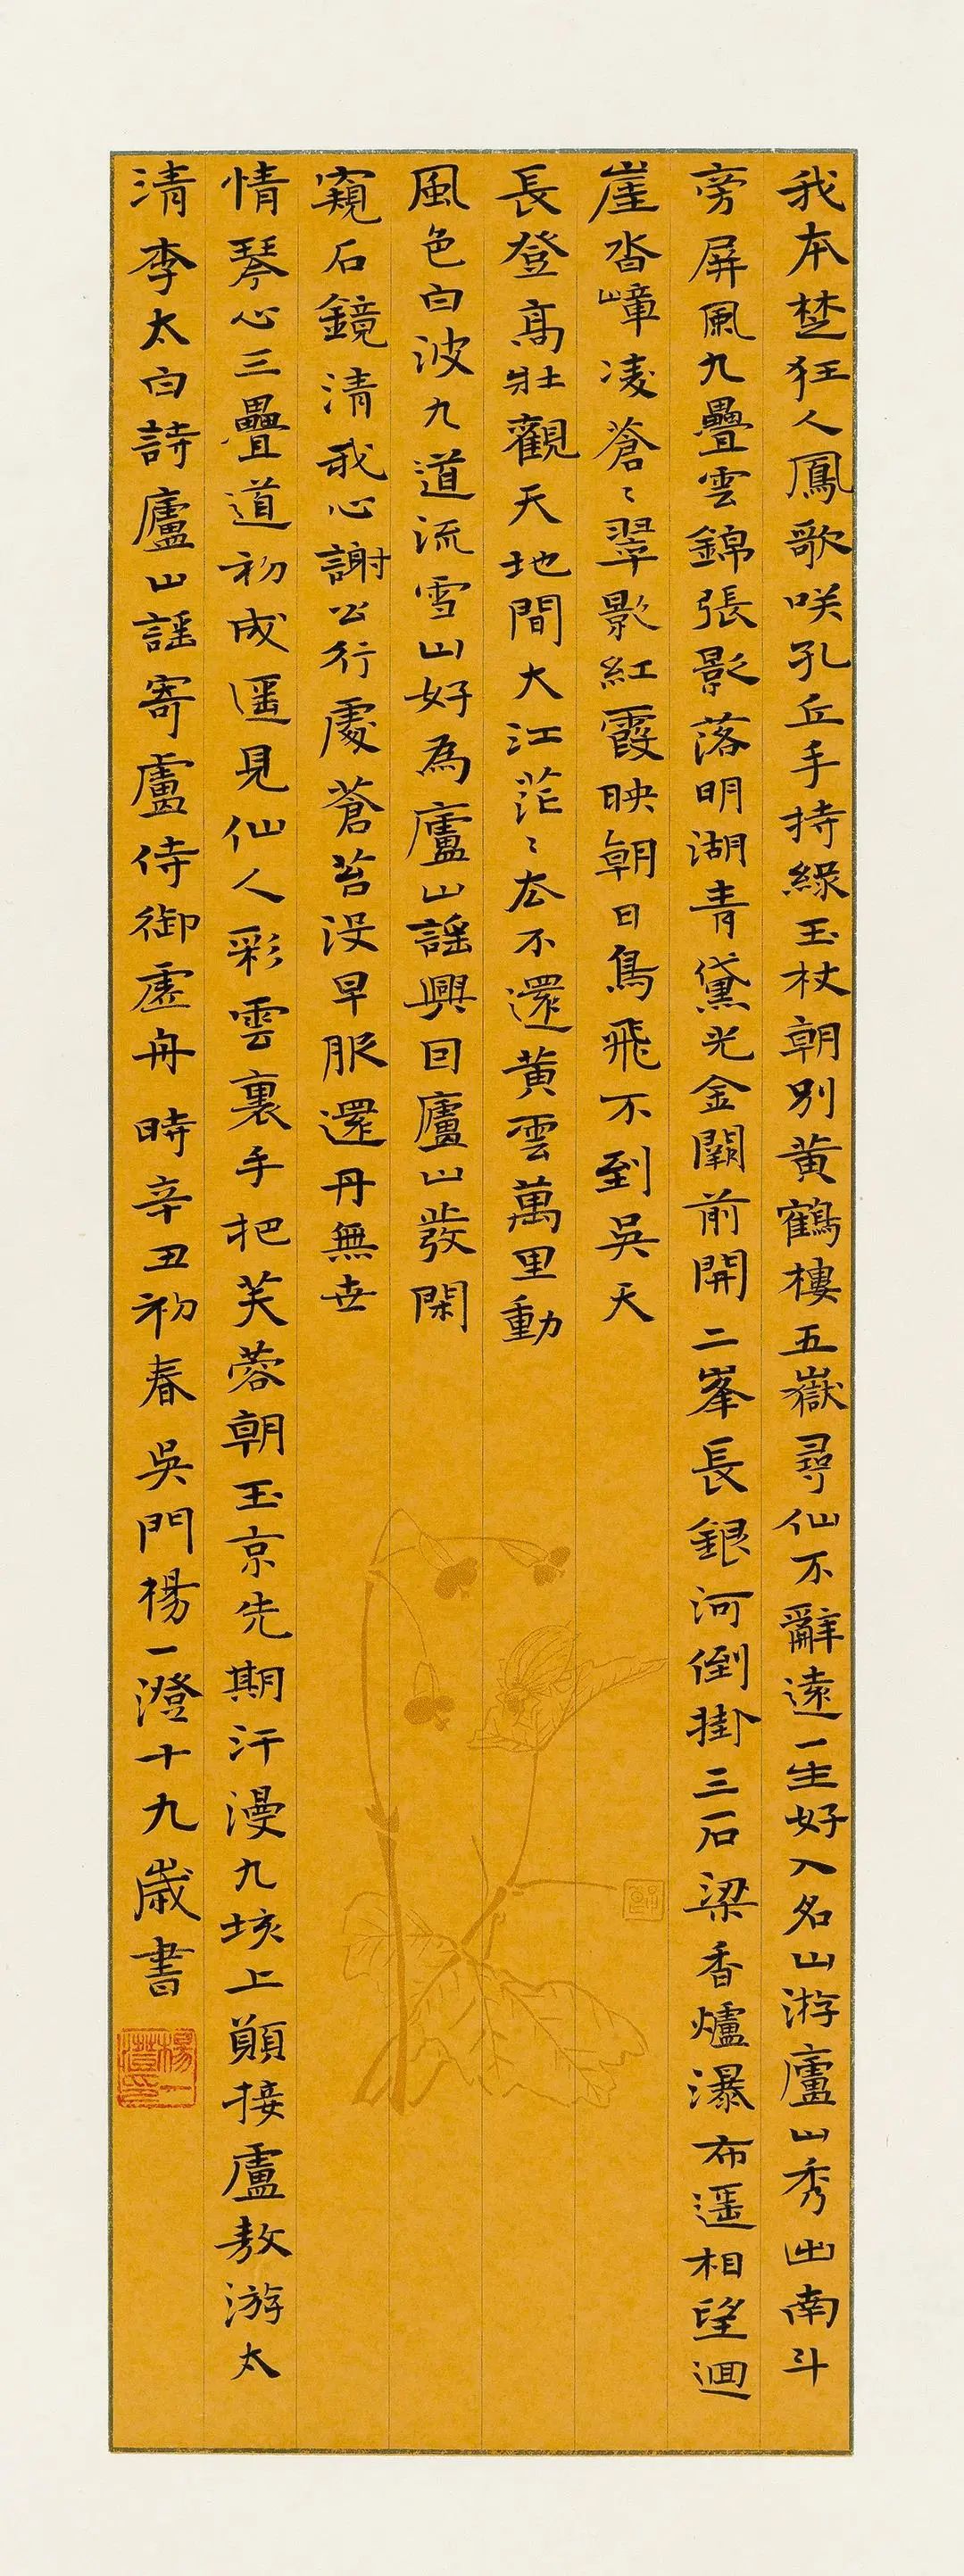 我本楚狂人鳳歌咲孔丘手持綠玉杖朝別黃鶴樓五嶽尋仙不辭遠一生好入名山游廬山秀出南斗
旁屏風九疊雲錦張影落明湖青黛光金闕前開二峯長銀河倒掛三石梁香爐瀑布遥相望迴
崖沓嶂凌蒼〻翠影紅霞映朝日鳥飛不到吳天
長登高壯觀天地間大江茫〻去不還黃雲萬里動
風色白波九道流雪山好為廬山謠興因廬山發閑
窺石鏡清我心謝公行處蒼苔没早服還丹無世
情琴心三疊道初成遥見仙人彩雲裏手把芙蓉朝玉京先期汗漫九垓上願接盧敖游太
清李太白詩廬山謠寄盧侍御虛舟 時辛丑初春 吳門楊一澄十九歲書
楊一澄印